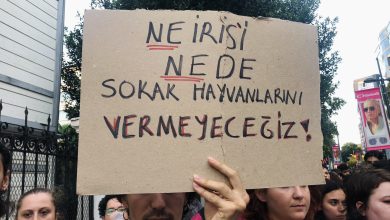 NE İRİSİ
NE DE
SOKAK HAYVANLARINI
VERMEYECEĞİZ!